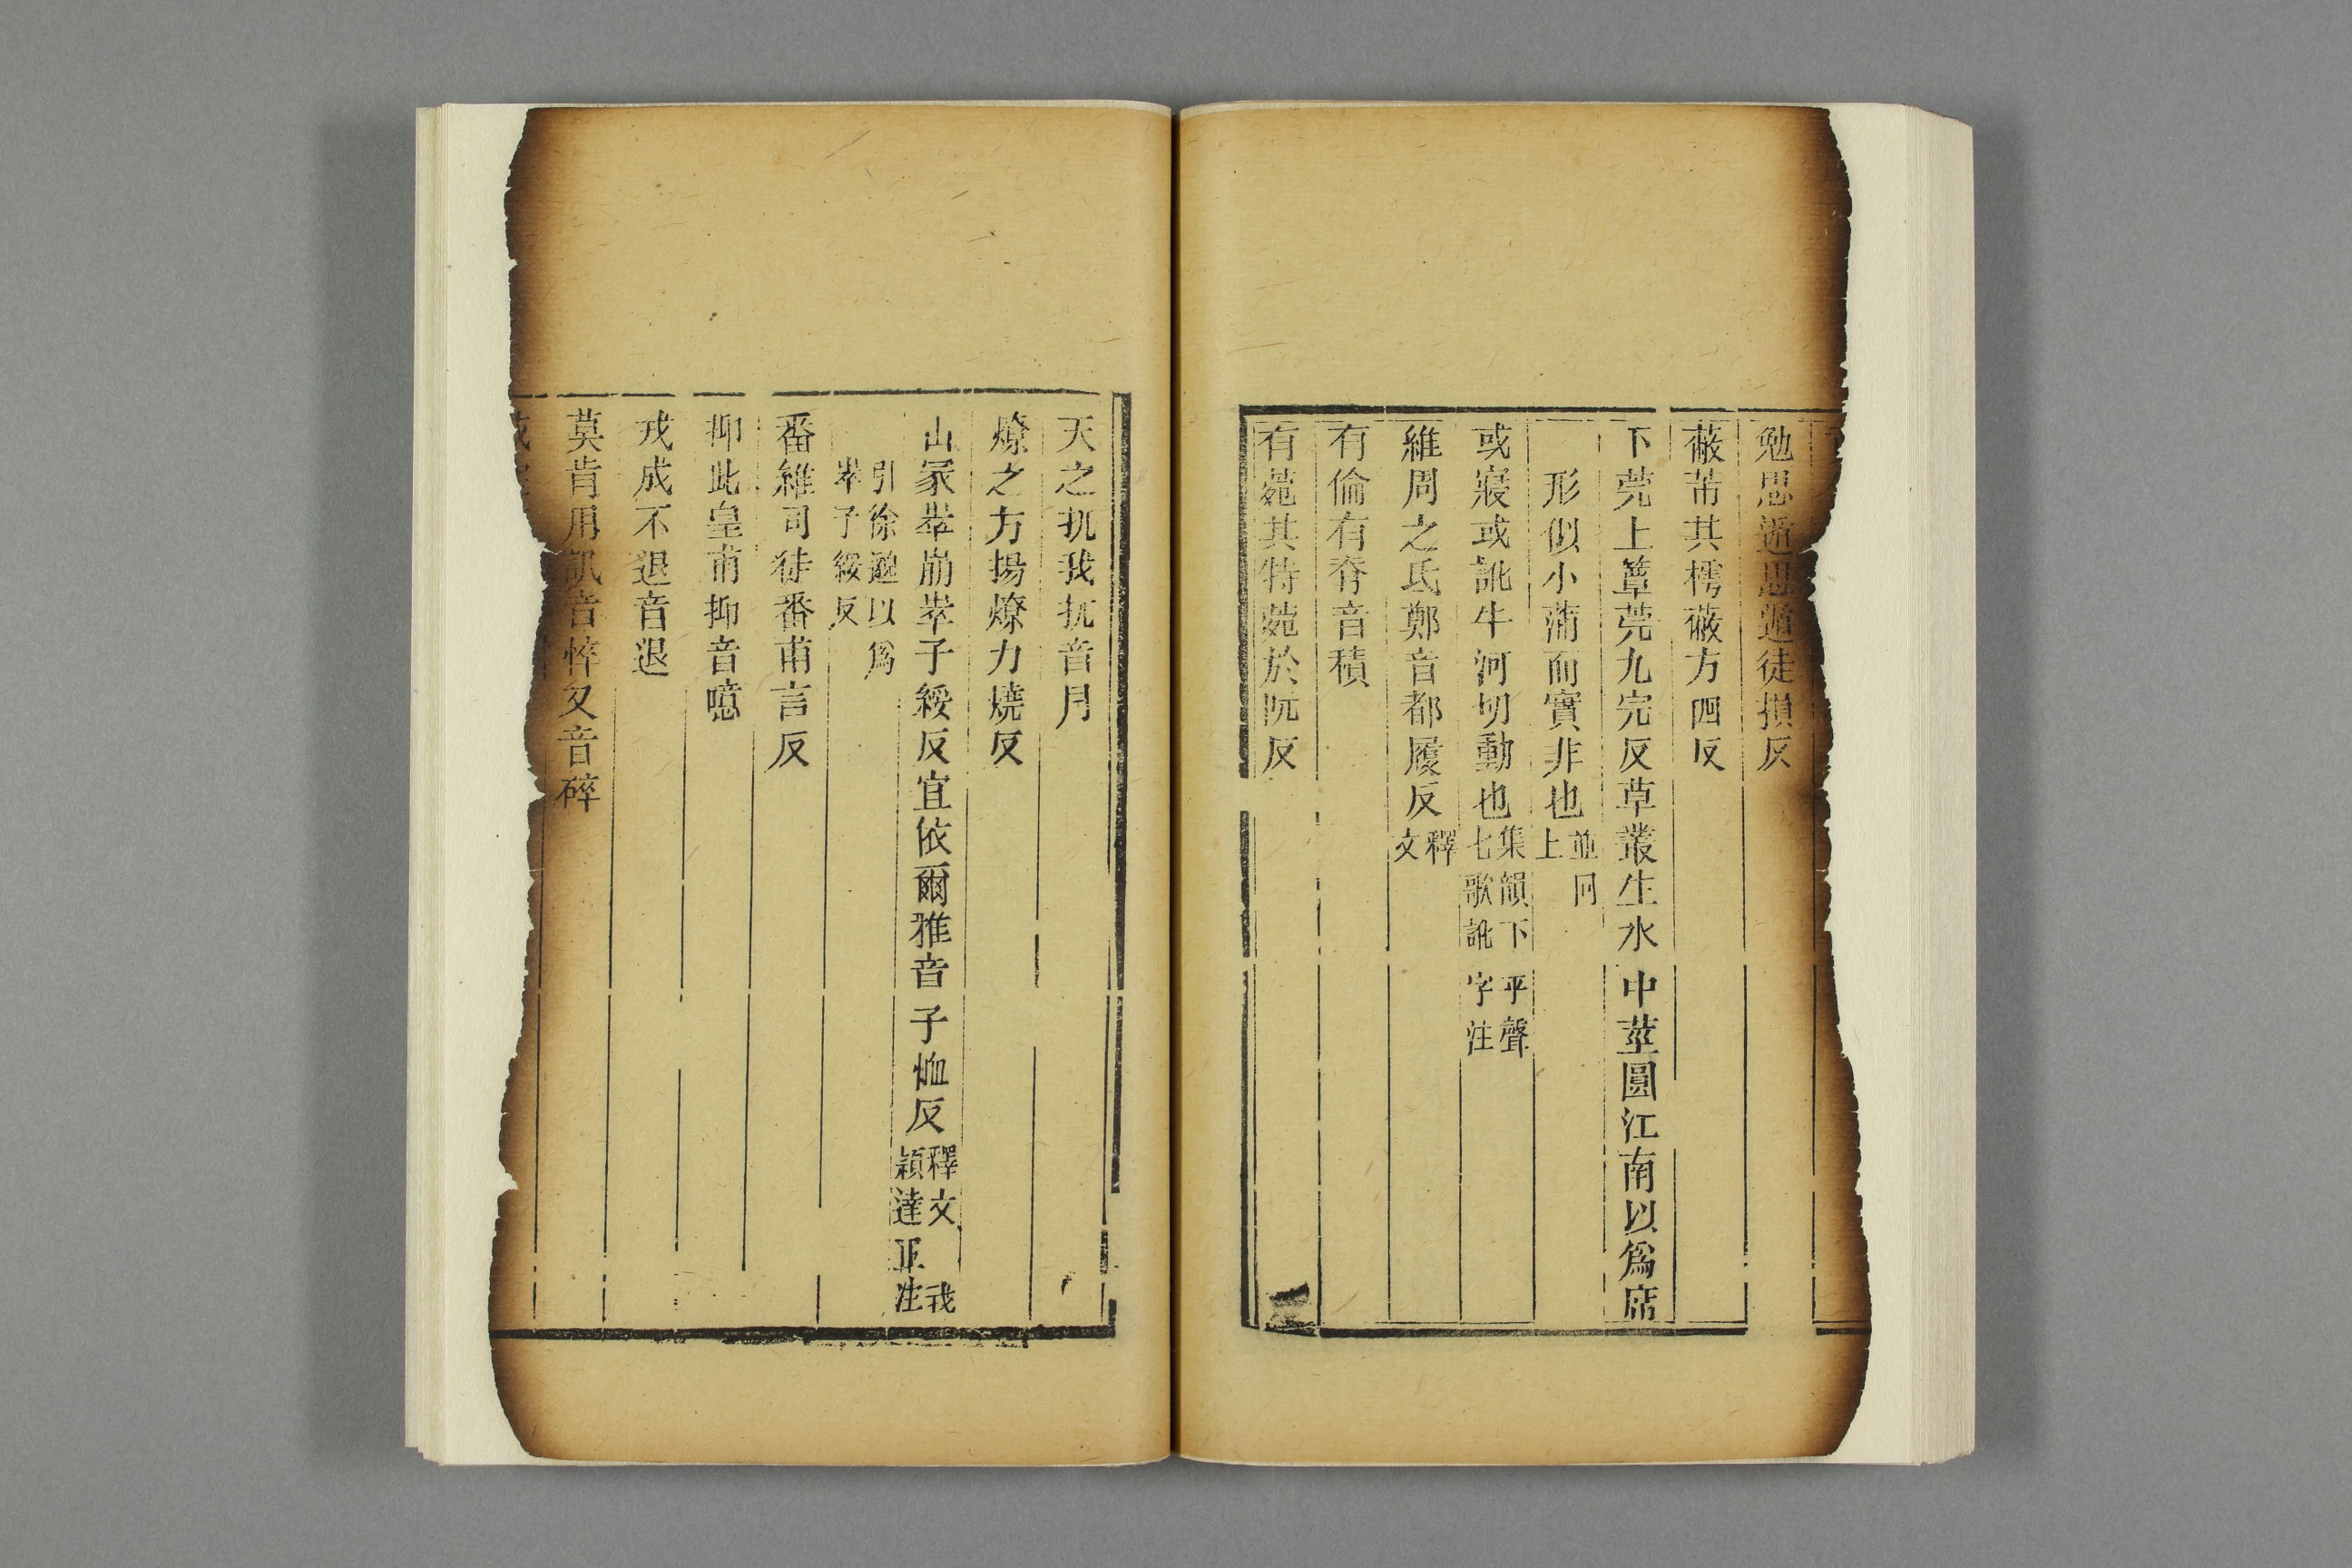 勉思遁思遁徒損反
蔽芾其樗蔽方四反
下莞上簟莞九完反草叢生水中莖圓江南以爲席
形似小蒲而實非也並同上
或寢或訛牛河切動也集韻下平聲七歌訛字注
維周之氐鄭音都履反釋文
有倫有脊音積
有菀其特菀於阮反
天之扤我扤音月
燎之方揚燎力燒反
山冢崒崩崒子綏反宜依爾雅音子恤反釋文 穎達正
引徐邈以爲崒子綏反
番維司徒番甫言反
抑此皇甫抑音噫
戎成不退音退
莫肯用訊音悴又音碎